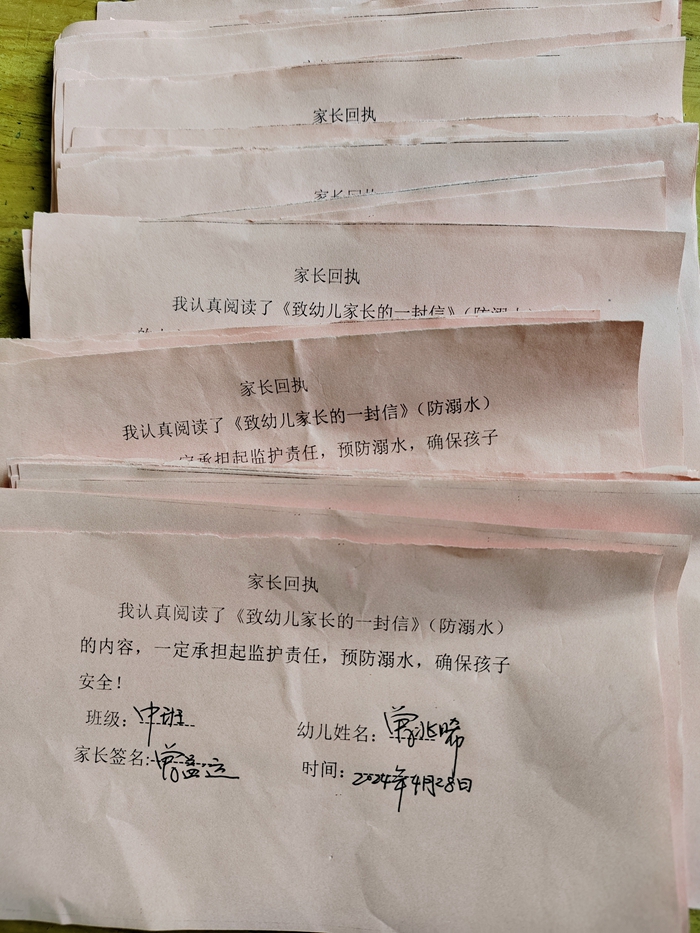 家长回执
家长回执
家长回执
我认真阅读了《致幼儿家长的一封信》（防溺水）
家长回执
我认真阅读了《致幼儿家长的一封信》（防溺水）
一定承担起监护责任，预防溺水，确保孩子
家长回执
我认真阅读了《致幼儿家长的一封信》（防溺水）
的内容，一定承担起监护责任，预防溺水，确保孩子
安全！
班级：中班 幼儿姓名：曾兆晞
家长签名：曾孟运
时间：2024年4月28日